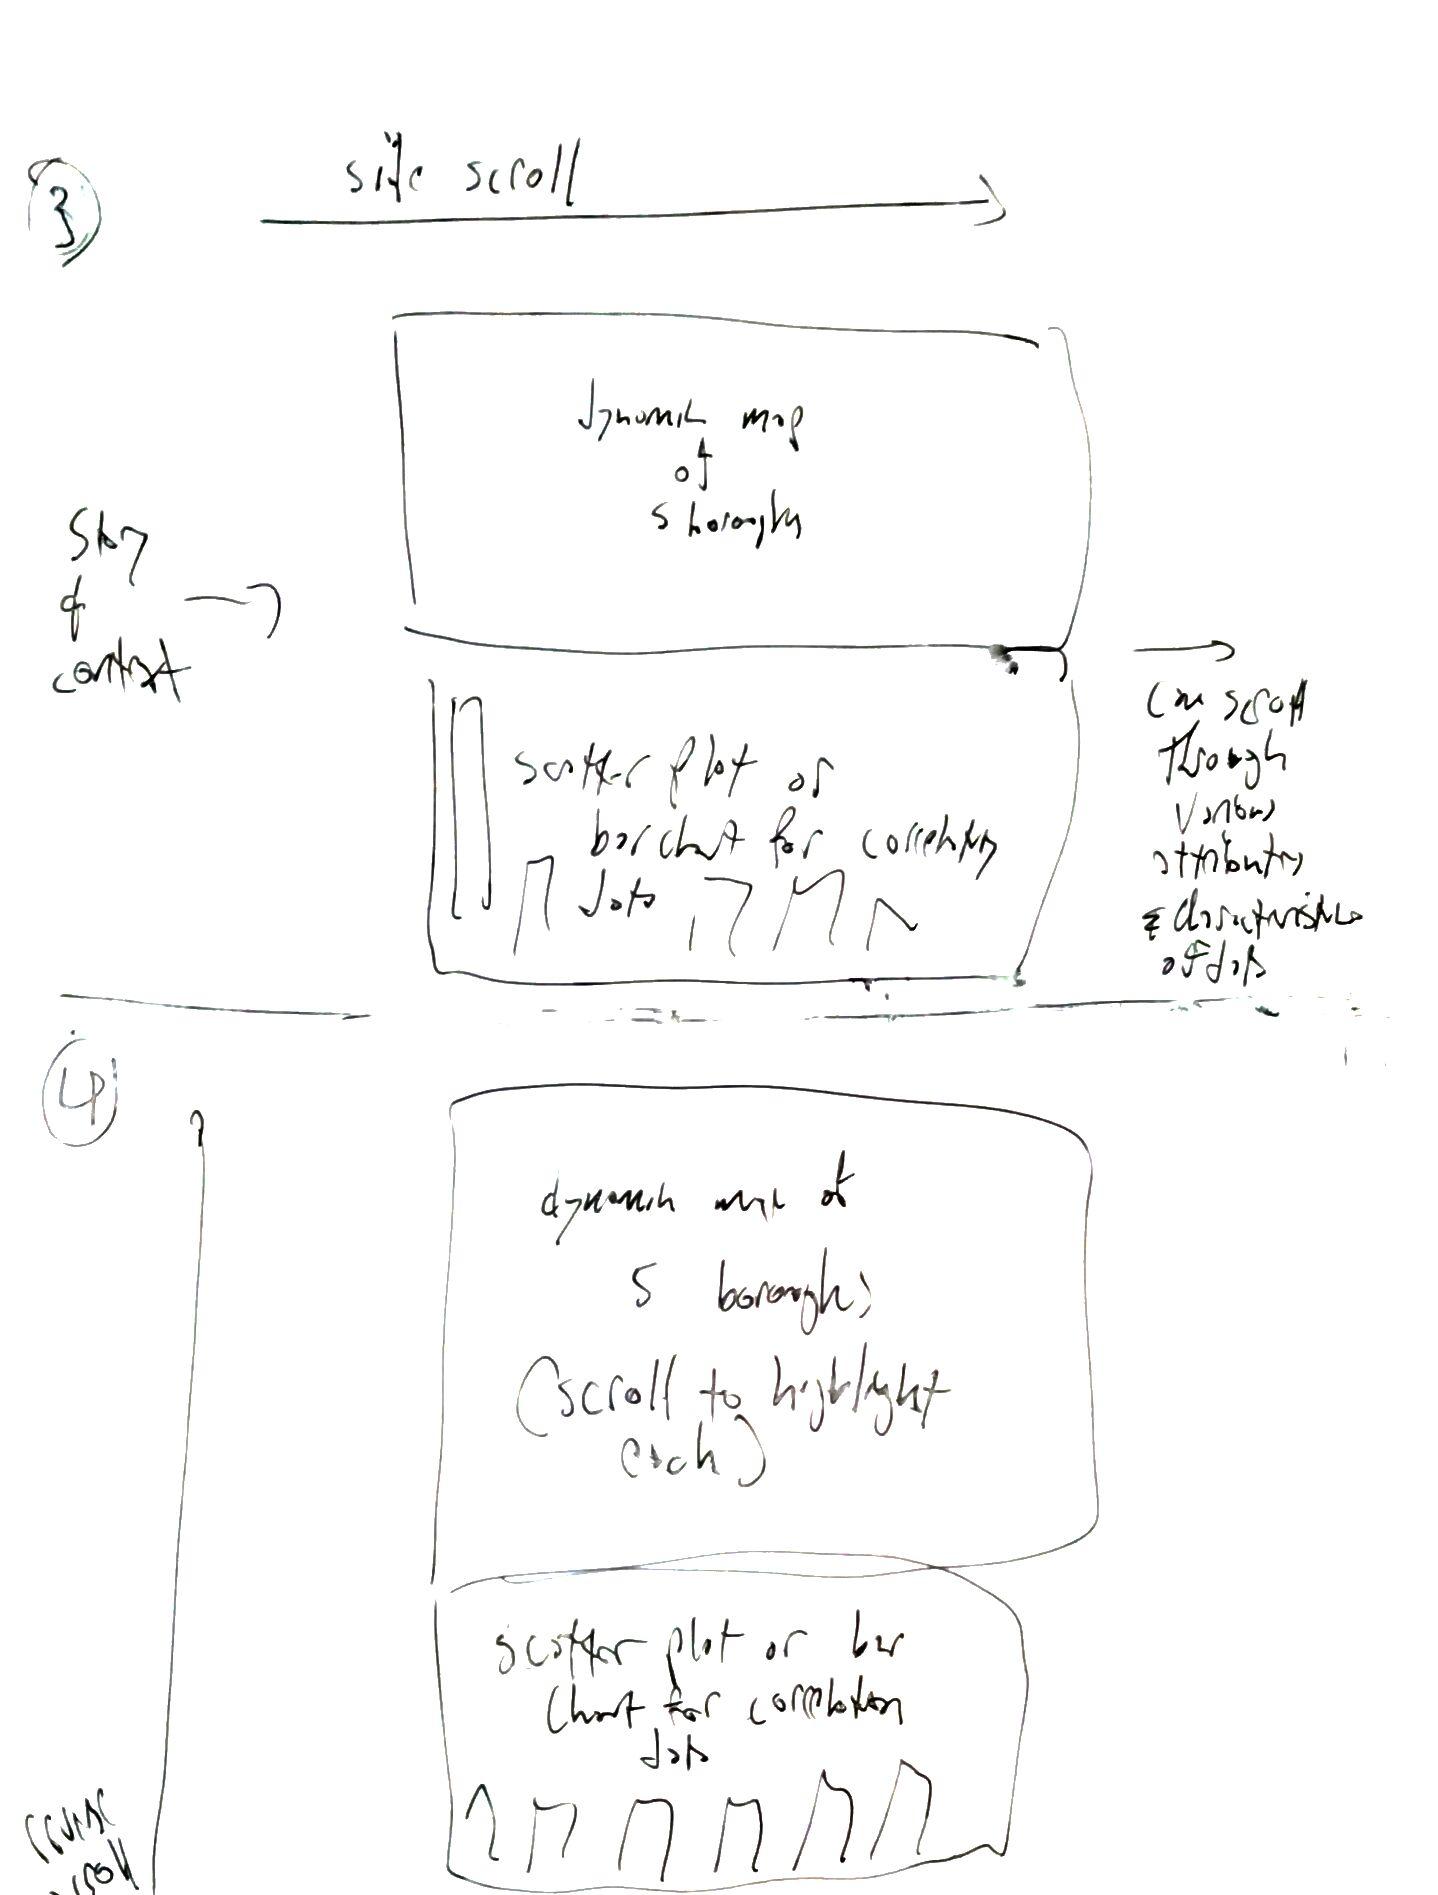 3
side scroll
dynamic map
of
5 boroughs
Story
&
context
scatter plot or
bar chart for correlation
data
can scroll
through
various
attributes
& characteristics
of data
4
dynamic map of
5 boroughs
(scroll to highlight
each)
scatter plot or bar
chart for correlation
data
reverse
scroll